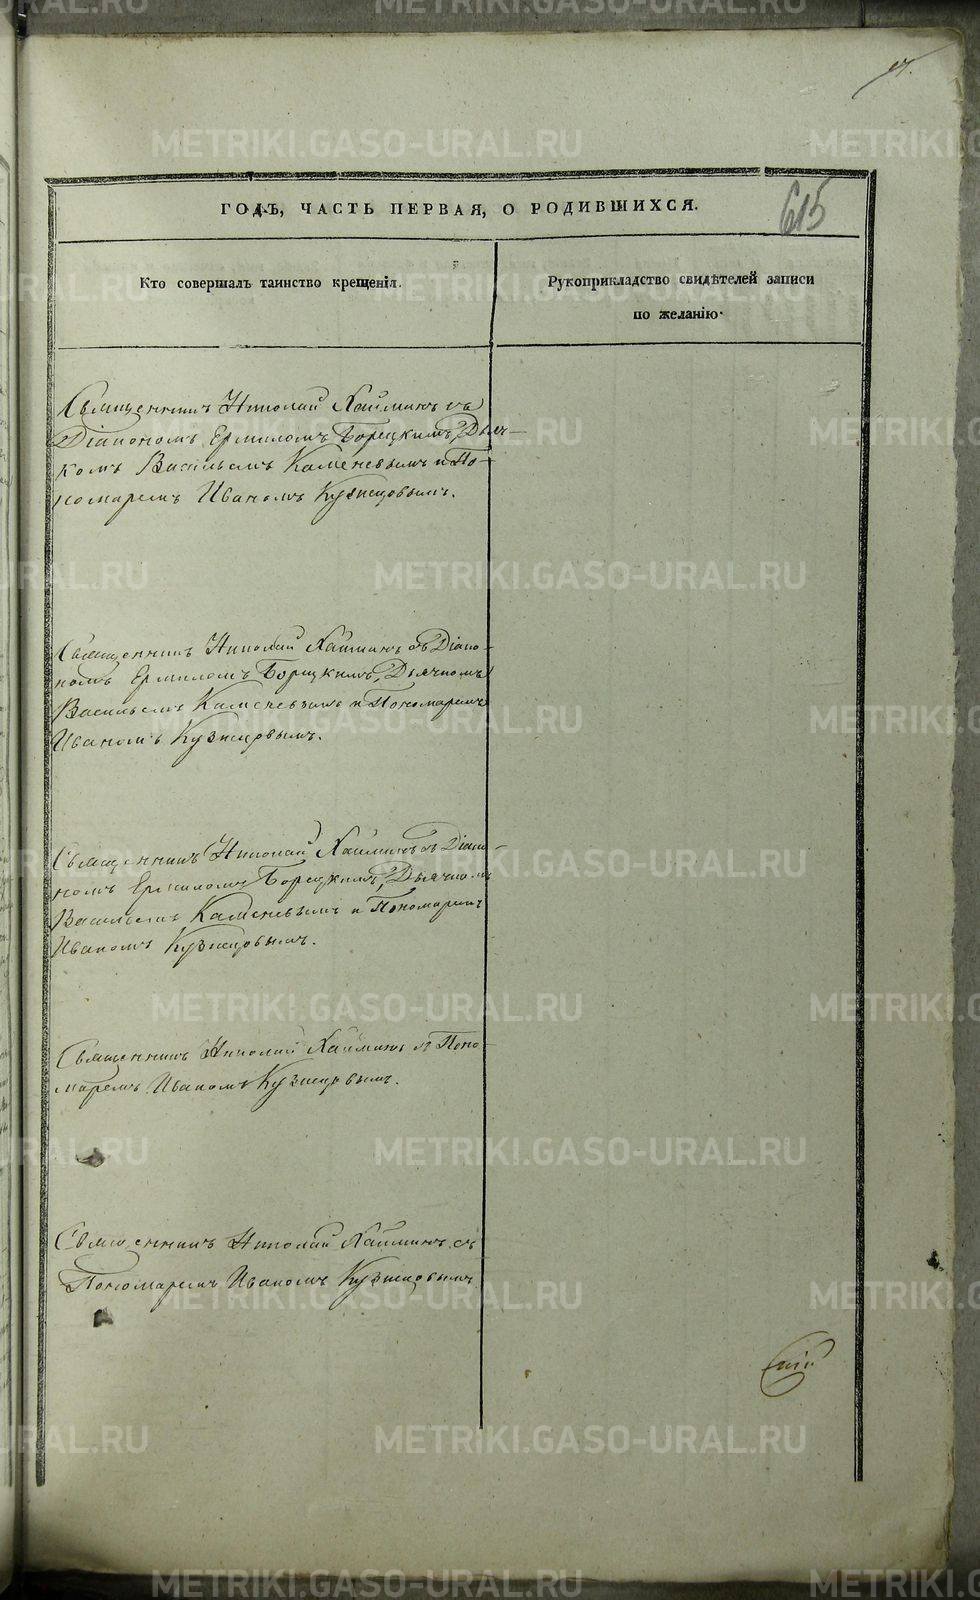 615
ГОДЪ, ЧАСТЬ ПЕРВАЯ, О РОДИВШИХСЯ.
Кто совершалъ таинство крещенія.
Рукоприкладство свидѣтелей записи
по желанію.
Священникъ Николай Хайминъ съ
Діакономъ Ермиломъ Борецкимъ, Дьяч-
комъ Васильемъ Каменевымъ и По-
номаремъ Иваномъ Кузнецовымъ.
Священникъ Николай Хайминъ съ Діако-
номъ Ермиломъ Борецкимъ, Дьячкомъ
Васильемъ Каменевымъ и Пономаремъ
Иваномъ Кузнецовымъ.
Священникъ Николай Хайминъ съ Діако-
номъ Ермиломъ Борецкимъ, Дьячкомъ
Васильемъ Каменевымъ и Пономаремъ
Иваномъ Кузнецовымъ.
Священникъ Николай Хайминъ съ Поно-
маремъ Иваномъ Кузнецовымъ.
Священникъ Николай Хайминъ съ
Пономаремъ Иваномъ Кузнецовымъ
METRIKI.GASO-URAL.RU